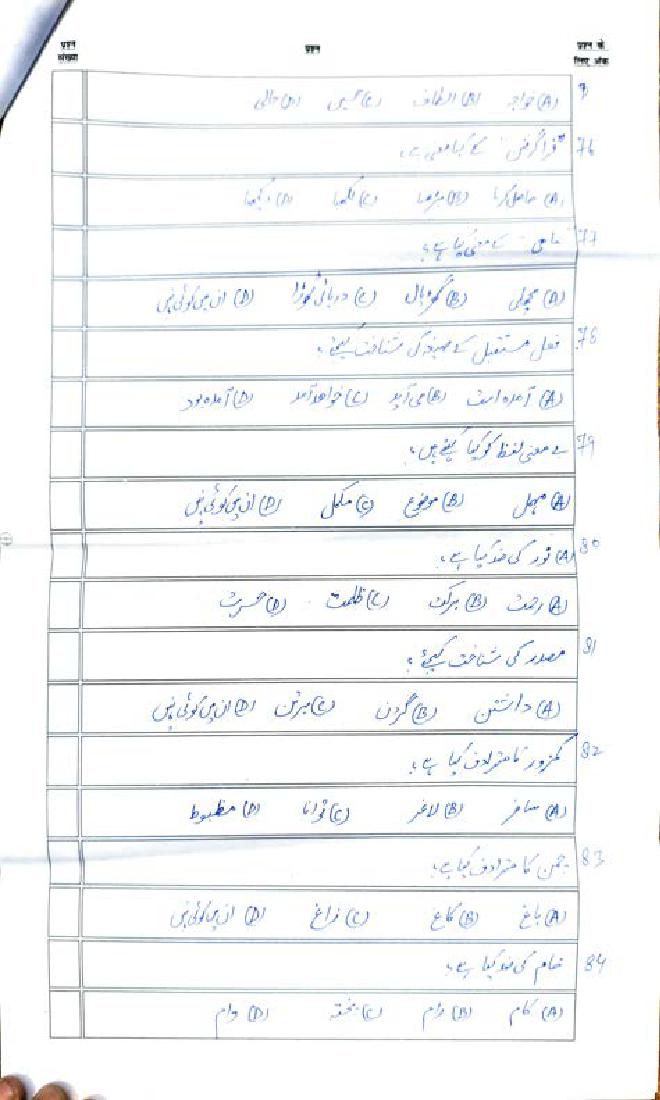 प्रश्न संख्या
प्रश्न
प्रश्न के लिए अंक
(A) خواجہ (B) الطاف (C) حسین (D) حالی
76 "فراگرفتن" کے کیا معنی ہے؟
(A) حاصل کرنا (B) پڑھنا (C) لکھنا (D) دیکھنا
77 کے معنی کیا ہے؟
(A) مچھلی (B) گھڑیال (C) دریائی گھوڑا (D) ان میں کوئی نہیں
78 فعل مستقبل کے صیغہ کی شناخت کیجئے؟
(A) آمدہ است (B) می آید (C) خواهد آمد (D) آمدہ بود
79 بے معنی لفظ کو کیا کہتے ہیں؟
(A) مہمل (B) موضوع (C) مکمل (D) ان میں کوئی نہیں
80 (A) نور کی ضد کیا ہے؟
(A) رحمت (B) برکت (C) ظلمت (D) حسرت
81 مصدر کی شناخت کیجئے؟
(A) داشتن (B) گردن (C) برتن (D) ان میں کوئی نہیں
82 کمزور کا مترادف کیا ہے؟
(A) ساغر (B) لاغر (C) توانا (D) مظبوط
83 چمن کا مترادف کیا ہے؟
(A) باغ (B) کاغ (C) فراغ (D) ان میں کوئی نہیں
84 خام کی ضد کیا ہے؟
(A) کام (B) رام (C) پختہ (D) دام